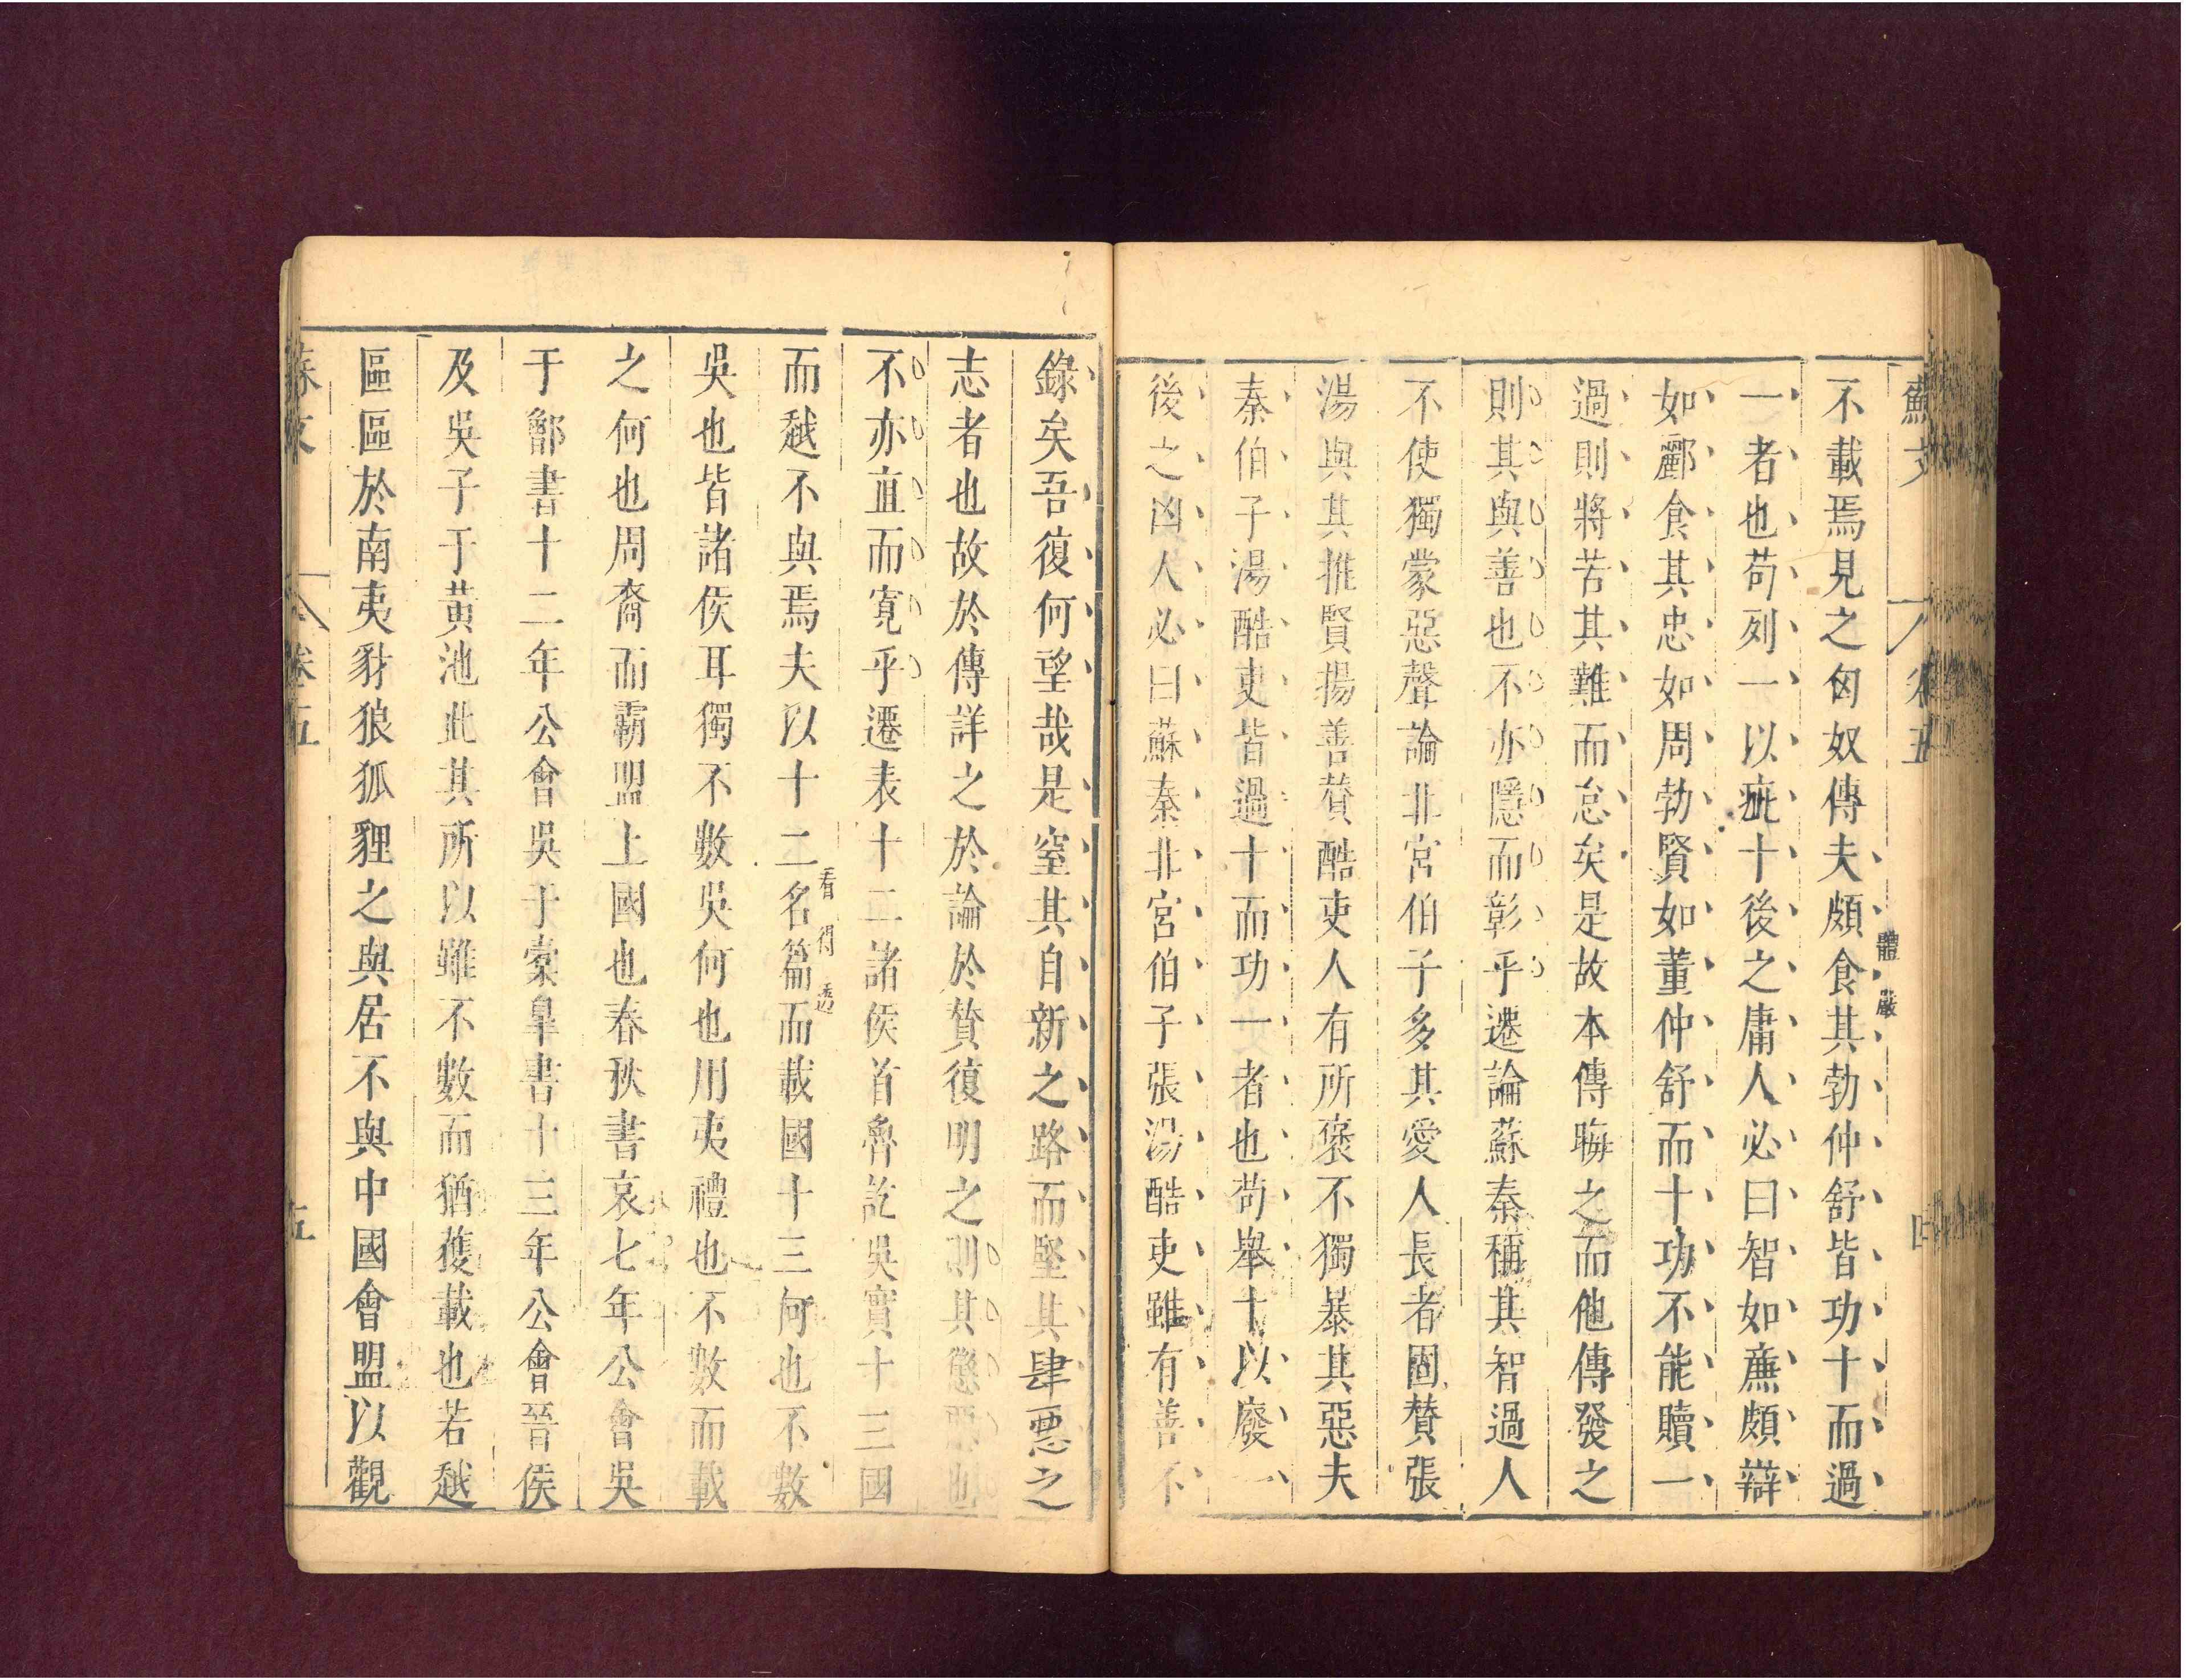 蘇文
卷五
四
不載焉見之匈奴傳夫頗食其勃仲舒皆功十而過
體嚴
一者也苟列一以疵十後之庸人必曰智如廉頗辯
如酈食其忠如周勃賢如董仲舒而十功不能贖一
過則將苦其難而怠矣是故本傳晦之而他傳發之
則其與善也不亦隱而彰乎遷論蘇秦稱其智過人
不使獨蒙惡聲論北宮伯子多其愛人長者固賛張
湯與其推賢揚善賛酷吏人有所襃不獨暴其惡夫
秦伯子湯酷吏皆過十而功一者也苟舉十以廢一
後之凶人必曰蘇秦北宮伯子張湯酷吏雖有善不
錄矣吾復何望哉是窒其自新之路而堅其肆惡之
志者也故於傳詳之於論於賛復明之則其懲惡也
不亦直而寬乎遷表十二諸侯首魯訖吳實十三國
而越不與焉夫以十二名篇而載國十三何也不數
看得透
吳也皆諸侯耳獨不數吳何也用夷禮也不數而載
之何也周裔而霸盟上國也春秋書哀七年公會吳
于鄫書十二年公會吳于橐皐書十三年公會晉侯
及吳子于黃池此其所以雖不數而猶獲載也若越
區區於南夷豺狼狐狸之與居不與中國會盟以觀
蘇文
卷五
五